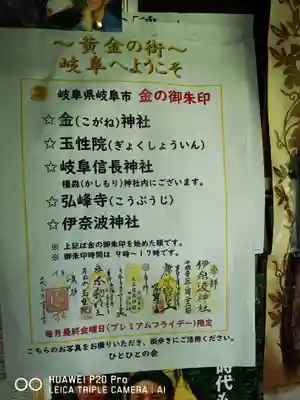 ～黄金の街～
岐阜へようこそ
岐阜県岐阜市 金の御朱印
☆金(こがね)神社
☆玉性院(ぎょくしょういん)
☆岐阜信長神社
橿森(かしもり)神社内にございます。
☆弘峰寺(こうぶうじ)
☆伊奈波神社
※ 上記は金の御朱印を始めた順です。
※ 御朱印時間は 9時～17時です。
奉拝
伊奈波神社
毎月最終金曜日(プレミアムフライデー)限定
こちらのお写真をお撮りいただき、街歩きにご活用ください。
ひとひとの会
時代
HUAWEI P20 Pro
LEICA TRIPLE CAMERA | AI